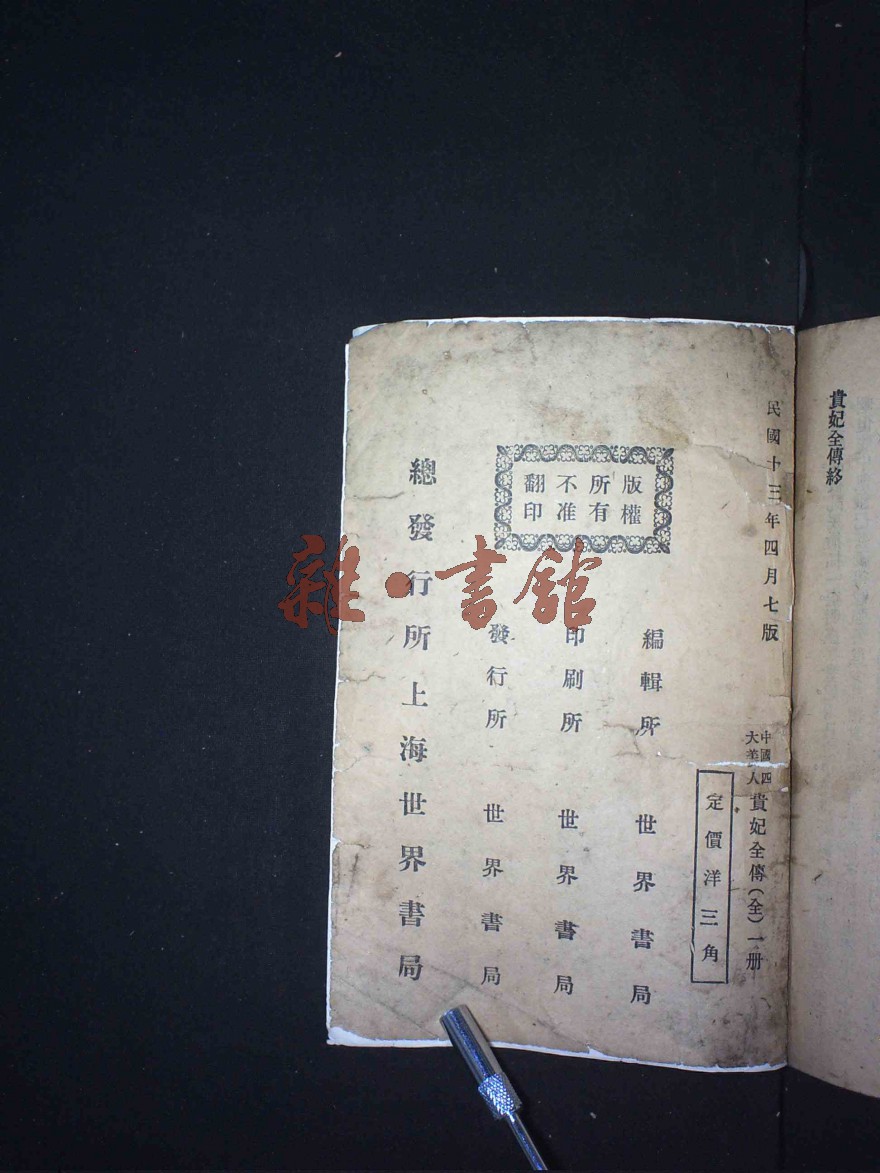 貴妃全傳終
民國十三年四月七版
中國四
大美人
貴妃全傳(全)一册
定價洋三角
版權
所有
不准
翻印
編輯所 世界書局
印刷所 世界書局
發行所 世界書局
總發行所上海世界書局
雜·書館